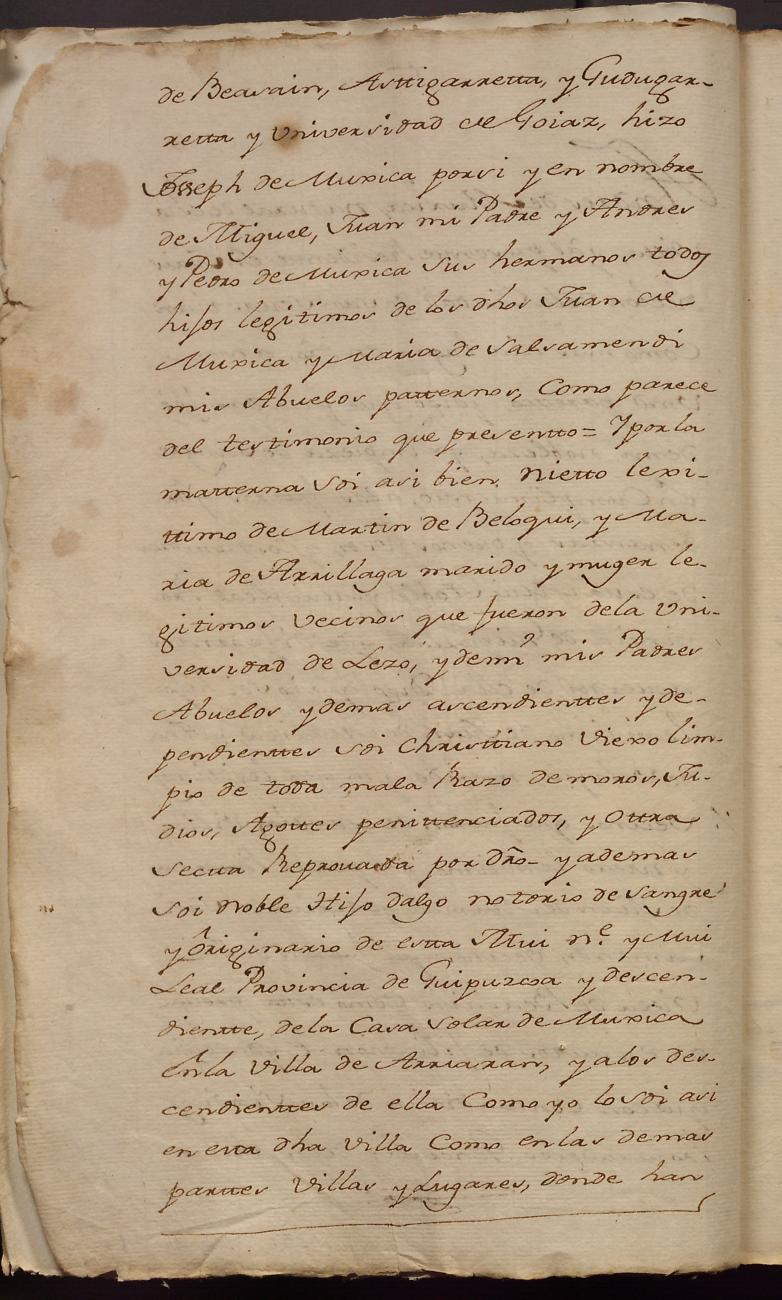 de Beasain, Asttigarretta, y Gudugar-
retta y Universidad de Goiaz, hizo
Joseph de Muxica porsi y en nombre
de Miguel, Juan mi Padre y Andres
y Pedro de Muxica sus hermanos todos
hijos legitimos de los dhos Juan de
Muxica y Maria de Salsamendi
mis Abuelos patternos, Como parece
del testimonio que presentto = Y por la
matterna soi asi bien nietto lexi-
ttimo de Martin de Beloqui, y Ma-
ria de Arrillaga marido y muger le-
gitimos vecinos que fueron dela Uni-
versidad de Lezo, y demr mis Padres
Abuelos y demas ascendienttes y de-
pendienttes soi Christtiano viexo lim-
pio de toda mala Razo de moros, Ju-
dios, Agottes penittenciados, y ottra
sectta Reprovada por dro- y ademas
soi Noble Hijo dalgo notorio de sangre
y Originario de estta Mui n.e y Mui
Leal Provincia de Guipuzcoa y descen-
diente, dela Casa Solar de Muxica
En la villa de Arriaran, y alos des-
cendienttes de ella Como yo lo soi asi
en estta dha villa Como en las demas
parttes villas y Lugares, donde han